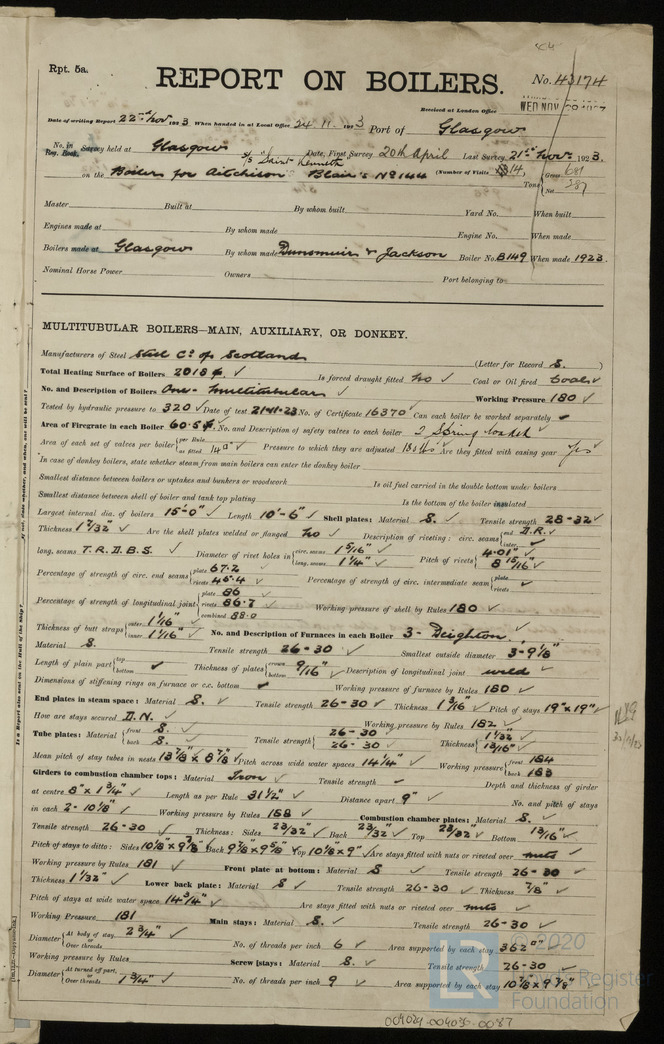 Rpt. 5a.
REPORT ON BOILERS.
No. 43174
Received at London Office
WED NOV
Date of writing Report 22nd Nov 1923 When handed in at Local Office 24. 11. 1923 Port of Glasgow
No. in Reg. Book. Survey held at Glasgow Date, First Survey 20th April Last Survey 21st Nov. 1923.
S/S "Saint Kenneth"
on the Boilers for Aitchison Blair's No 144 (Number of Visits 14) Tons { Gross 681 Net 287
Master Built at By whom built Yard No. When built
Engines made at By whom made Engine No. When made
Boilers made at Glasgow By whom made Dunsmuir & Jackson Boiler No. B149 When made 1923.
Nominal Horse Power Owners Port belonging to
MULTITUBULAR BOILERS—MAIN, AUXILIARY, OR DONKEY.
Manufacturers of Steel Steel Co. of Scotland (Letter for Record S.)
Total Heating Surface of Boilers 2018 Is forced draught fitted No Coal or Oil fired Coal
No. and Description of Boilers One - Multitubular Working Pressure 180
Tested by hydraulic pressure to 320 Date of test 21-11-23 No. of Certificate 16370 Can each boiler be worked separately
Area of Firegrate in each Boiler 60.5 No. and Description of safety valves to each boiler 2 Spring loaded
Area of each set of valves per boiler { per Rule as fitted 14 Pressure to which they are adjusted Are they fitted with easing gear Yes
In case of donkey boilers, state whether steam from main boilers can enter the donkey boiler
Smallest distance between boilers or uptakes and bunkers or woodwork Is oil fuel carried in the double bottom under boilers
Smallest distance between shell of boiler and tank top plating Is the bottom of the boiler insulated
Largest internal dia. of boilers 15'-0" Length 10'-6" Shell plates: Material S. Tensile strength 28-32
Thickness 1 7/32" Are the shell plates welded or flanged No Description of riveting: circ. seams { end D.R. inter.
long. seams T.R.D.B.S. Diameter of rivet holes in { circ. seams 1 5/16" long. seams 1 1/4" Pitch of rivets { 4.01" 8 15/16"
Percentage of strength of circ. end seams { plate 67.2 rivets 45.4 Percentage of strength of circ. intermediate seam { plate rivets
Percentage of strength of longitudinal joint { plate 86 rivets 86.7 combined 88.0 Working pressure of shell by Rules 180
Thickness of butt straps { outer 1 1/16" inner 1 1/16" No. and Description of Furnaces in each Boiler 3 - Deighton
Material S. Tensile strength 26-30 Smallest outside diameter 3-9 1/8"
Length of plain part { top bottom Thickness of plates { crown bottom 9/16" Description of longitudinal joint weld
Dimensions of stiffening rings on furnace or c.c. bottom Working pressure of furnace by Rules 180
End plates in steam space: Material S. Tensile strength 26-30 Thickness 1 3/16" Pitch of stays 19" x 19"
How are stays secured D.N. Working pressure by Rules 182
Tube plates: Material { front S. back S. Tensile strength { 26-30 26-30 Thickness { 1 1/32" 13/16"
Mean pitch of stay tubes in nests 13 7/8" x 8 7/8" Pitch across wide water spaces 14 1/4" Working pressure { front 184 back 183
Girders to combustion chamber tops: Material Iron Tensile strength Depth and thickness of girder
at centre 8" x 1 3/4" Length as per Rule 31 1/2" Distance apart 9" No. and pitch of stays
in each 2 - 10 1/8" Working pressure by Rules 188 Combustion chamber plates: Material S.
Tensile strength 26-30 Thickness: Sides 23/32" Back 23/32" Top 23/32" Bottom 13/16"
Pitch of stays to ditto: Sides 10 1/8" x 9 7/8" Back 9 7/8" x 9 5/8" Top 10 1/8" x 9" Are stays fitted with nuts or riveted over nuts
Working pressure by Rules 181 Front plate at bottom: Material S Tensile strength 26-30
Thickness 1 1/32" Lower back plate: Material S Tensile strength 26-30 Thickness 7/8"
Pitch of stays at wide water space 14 3/4" Are stays fitted with nuts or riveted over nuts
Working Pressure 181 Main stays: Material S. Tensile strength 26-30
Diameter { At body of stay, 2 3/4" Over threads No. of threads per inch 6 Area supported by each stay 362
Working pressure by Rules Screw stays: Material S. Tensile strength 26-30
Diameter { At turned off part, Over threads 1 3/4" No. of threads per inch 9 Area supported by each stay 10 1/8 x 9 7/8"
Is a Report also sent on the Hull of the Ship?
© 2020
LR
Lloyd's Register
Foundation
004029-004036-0087